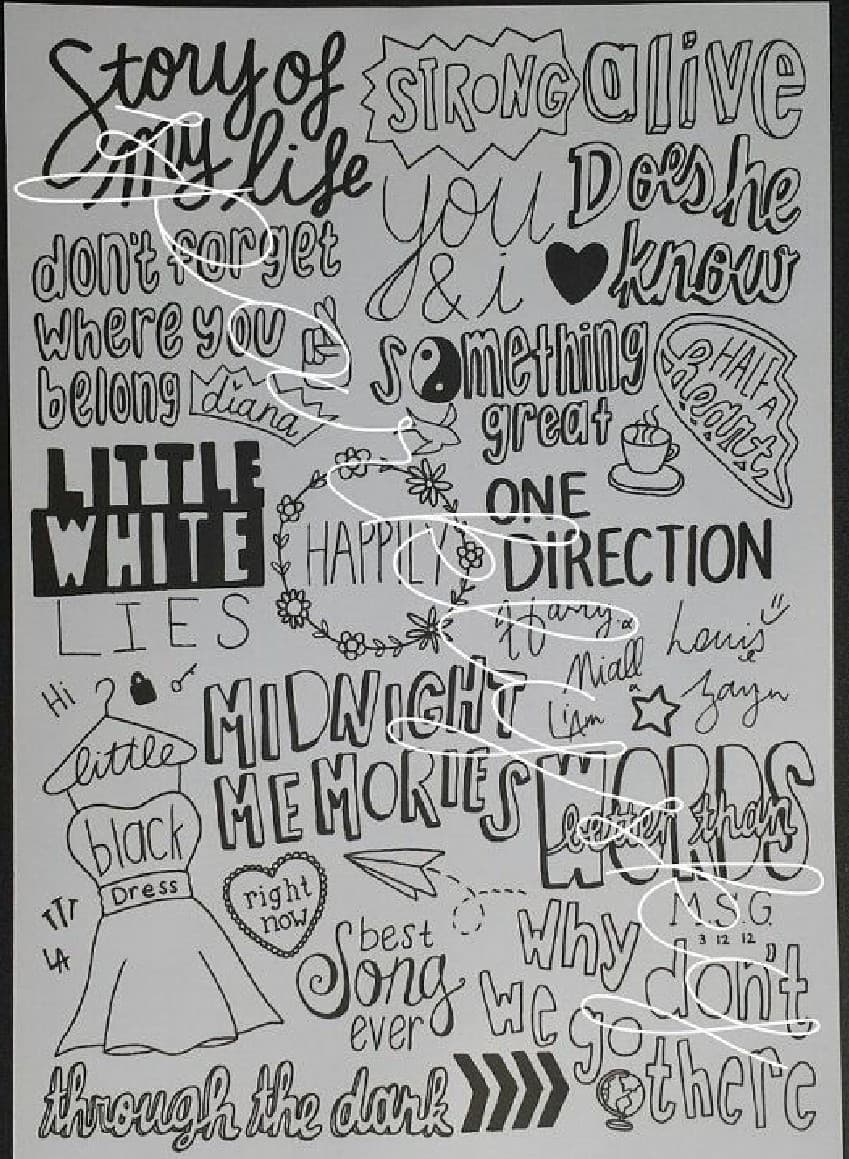 Story of
my life
STRONG
alive
you
& i
Does he
know
don't forget
where you
belong
diana
something
great
HALF
A
Heart
LITTLE
WHITE
LIES
HAPPILY
ONE
DIRECTION
Harry.
Louis
Niall
Liam
Zayn
Hi
little
black
Dress
MIDNIGHT
MEMORIES
better than
WORDS
right
now
LA
M.S.G.
3 12 12
best
Song
ever
Why
we
don't
go
there
through the dark